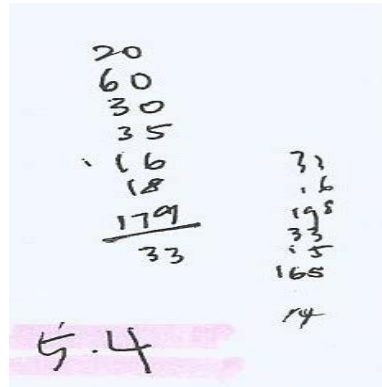 20
60
30
35
16
18
179
33
33
.6
198
33
.5
165
14
5.4